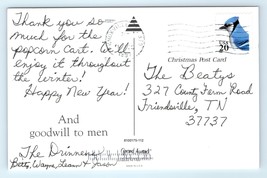 Thank you so
much for the
popcorn cart. We'll
enjoy it throughout
the winter!
Happy New Year!
And
goodwill to men
The Drinnens
Betty, Wayne, Leann & Jason
USA
20
Christmas Post Card
The Beatys
327 County Farm Road
Friendsville, TN
37737